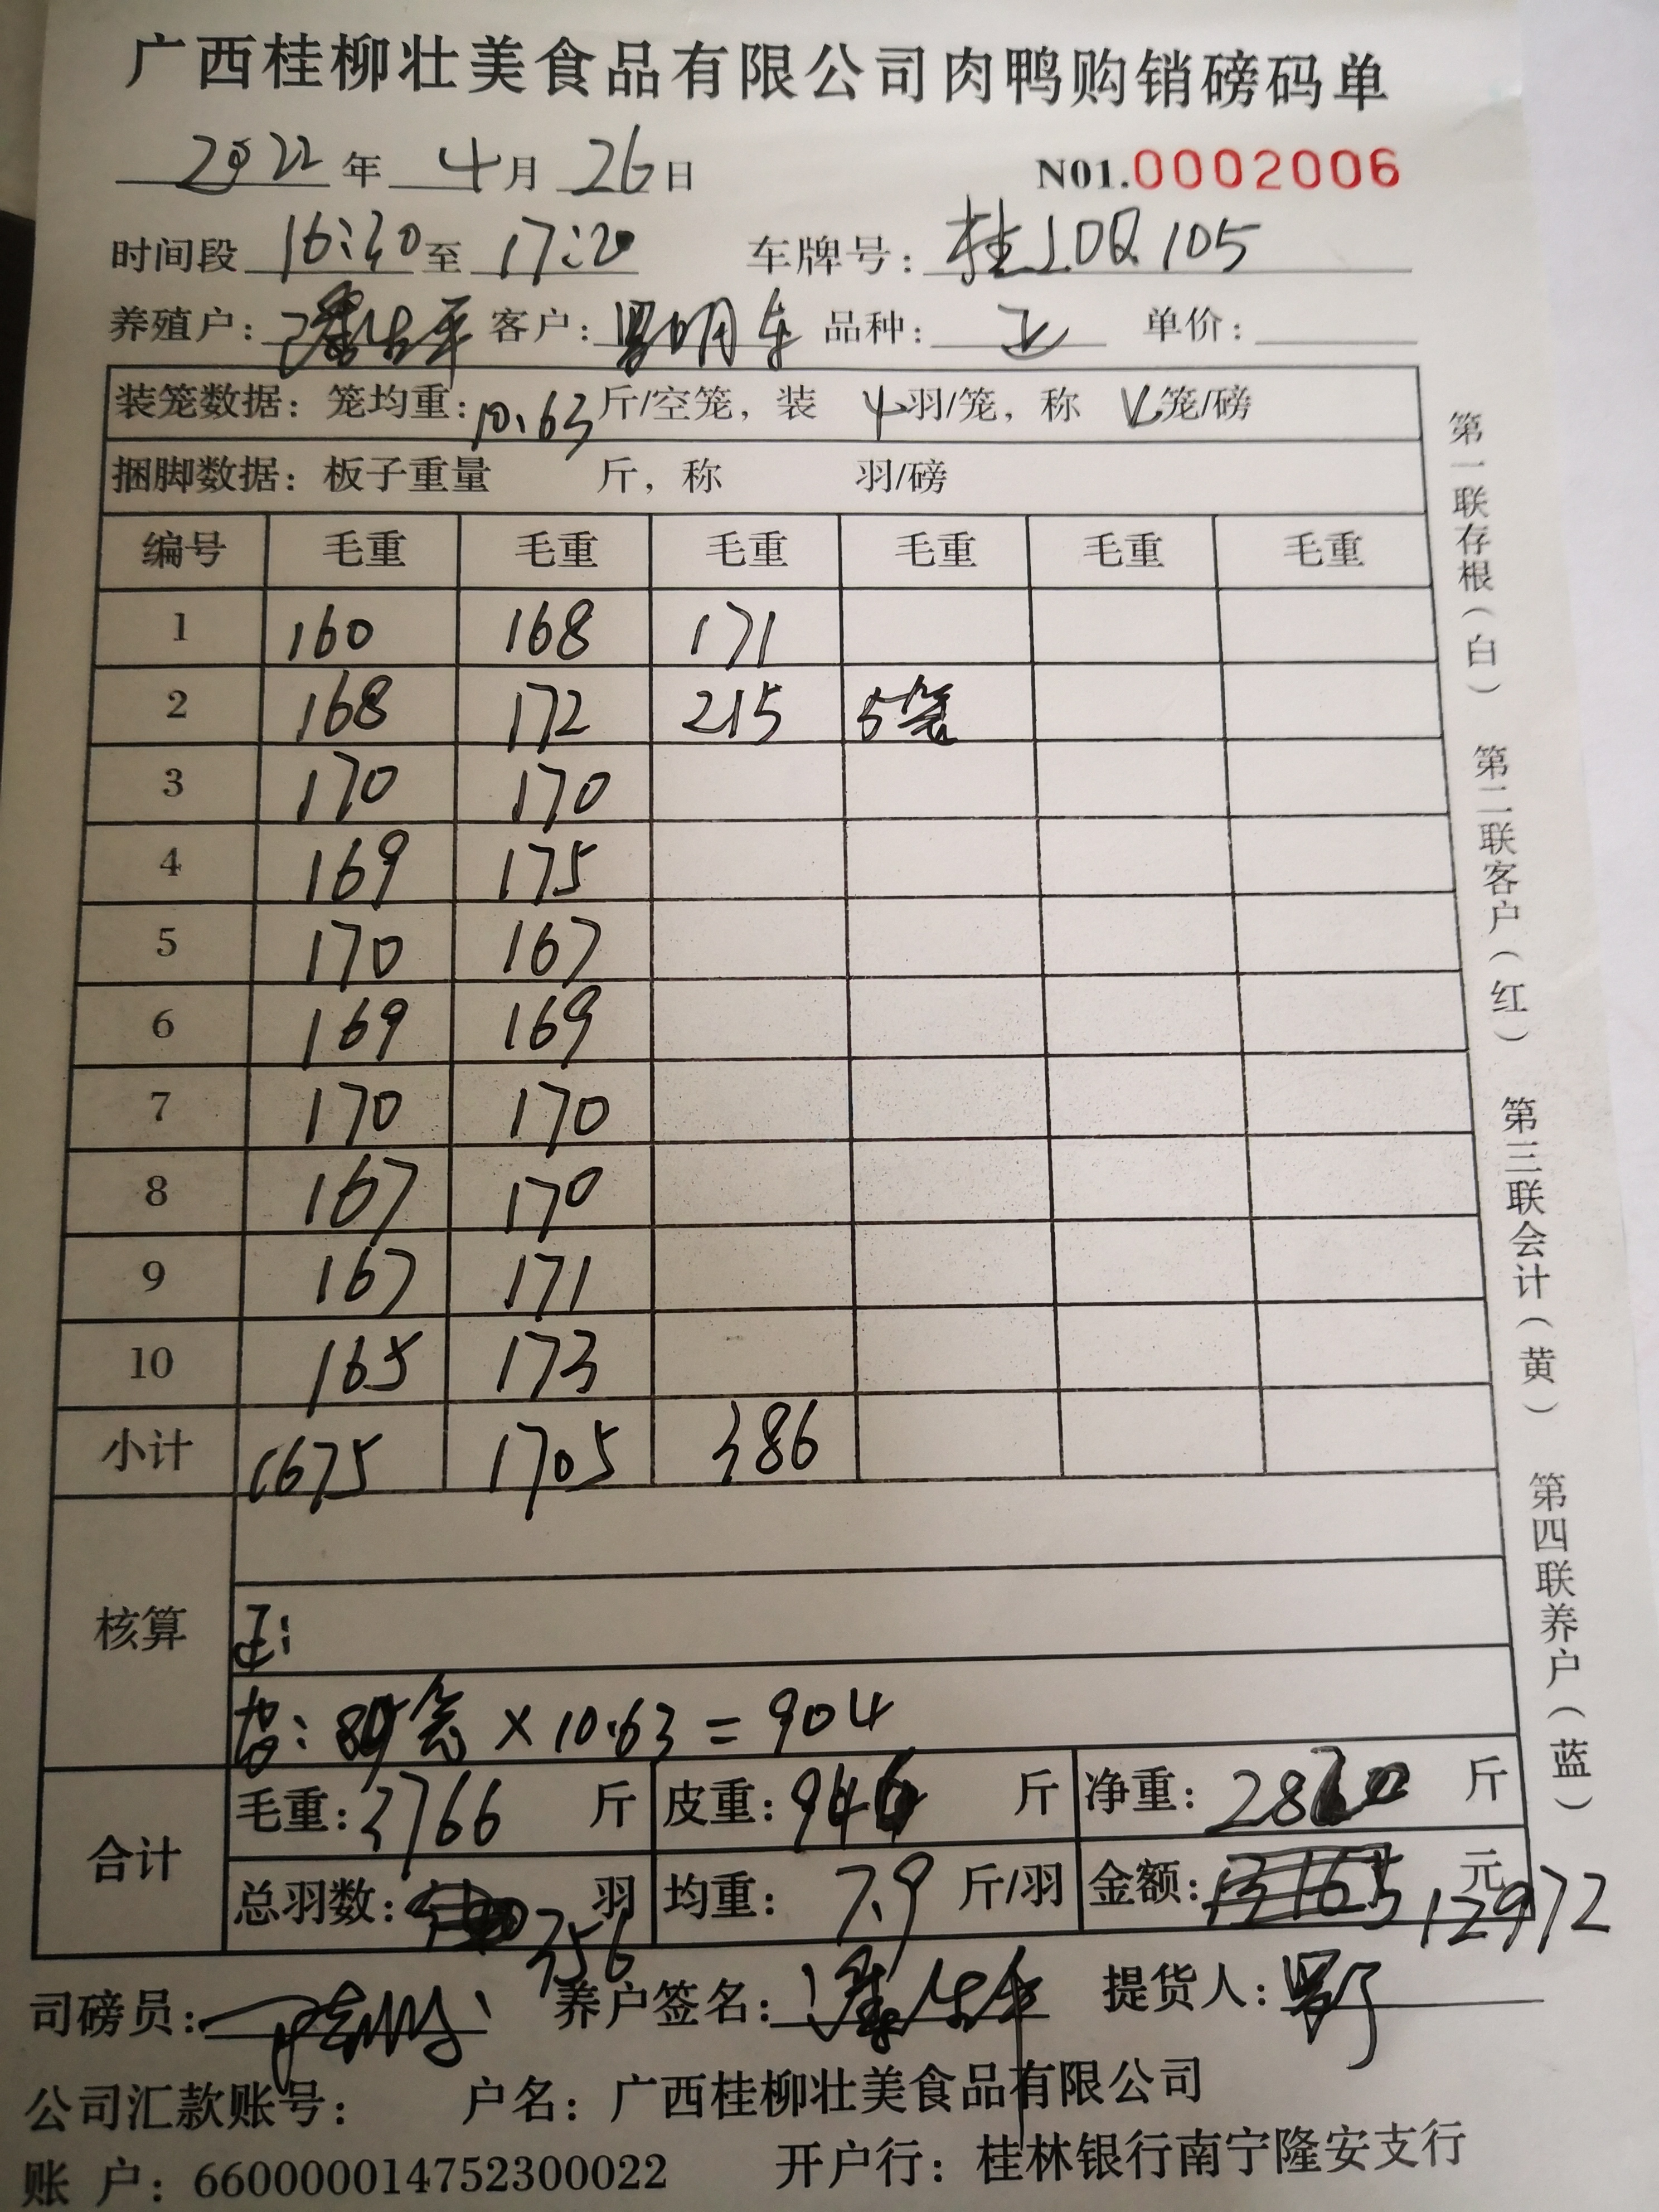 广西桂柳壮美食品有限公司肉鸭购销磅码单
2022年 4月 26日 N01.0002006
时间段 16:30 至 17:20 车牌号: 桂 105
养殖户: 客户: 品种: 正 单价:
装笼数据: 笼均重: 10.63 斤/空笼, 装 4 羽/笼, 称 笼/磅
捆脚数据: 板子重量 斤, 称 羽/磅
编号 毛重 毛重 毛重 毛重 毛重 毛重
1 160 168 171
2 168 172 215 5笼
3 170 170
4 169 175
5 170 167
6 169 169
7 170 170
8 167 170
9 167 171
10 165 173
小计 1675 1705 386
核算
正:
× 10.63 = 904
合计 毛重: 3766 斤 皮重: 斤 净重: 斤
总羽数: 356 羽 均重: 7.9 斤/羽 金额: 12972 元
司磅员: 养户签名: 提货人:
公司汇款账号: 户名: 广西桂柳壮美食品有限公司
账 户: 660000014752300022 开户行: 桂林银行南宁隆安支行
第一联存根(白) 第二联客户(红) 第三联会计(黄) 第四联养户(蓝)